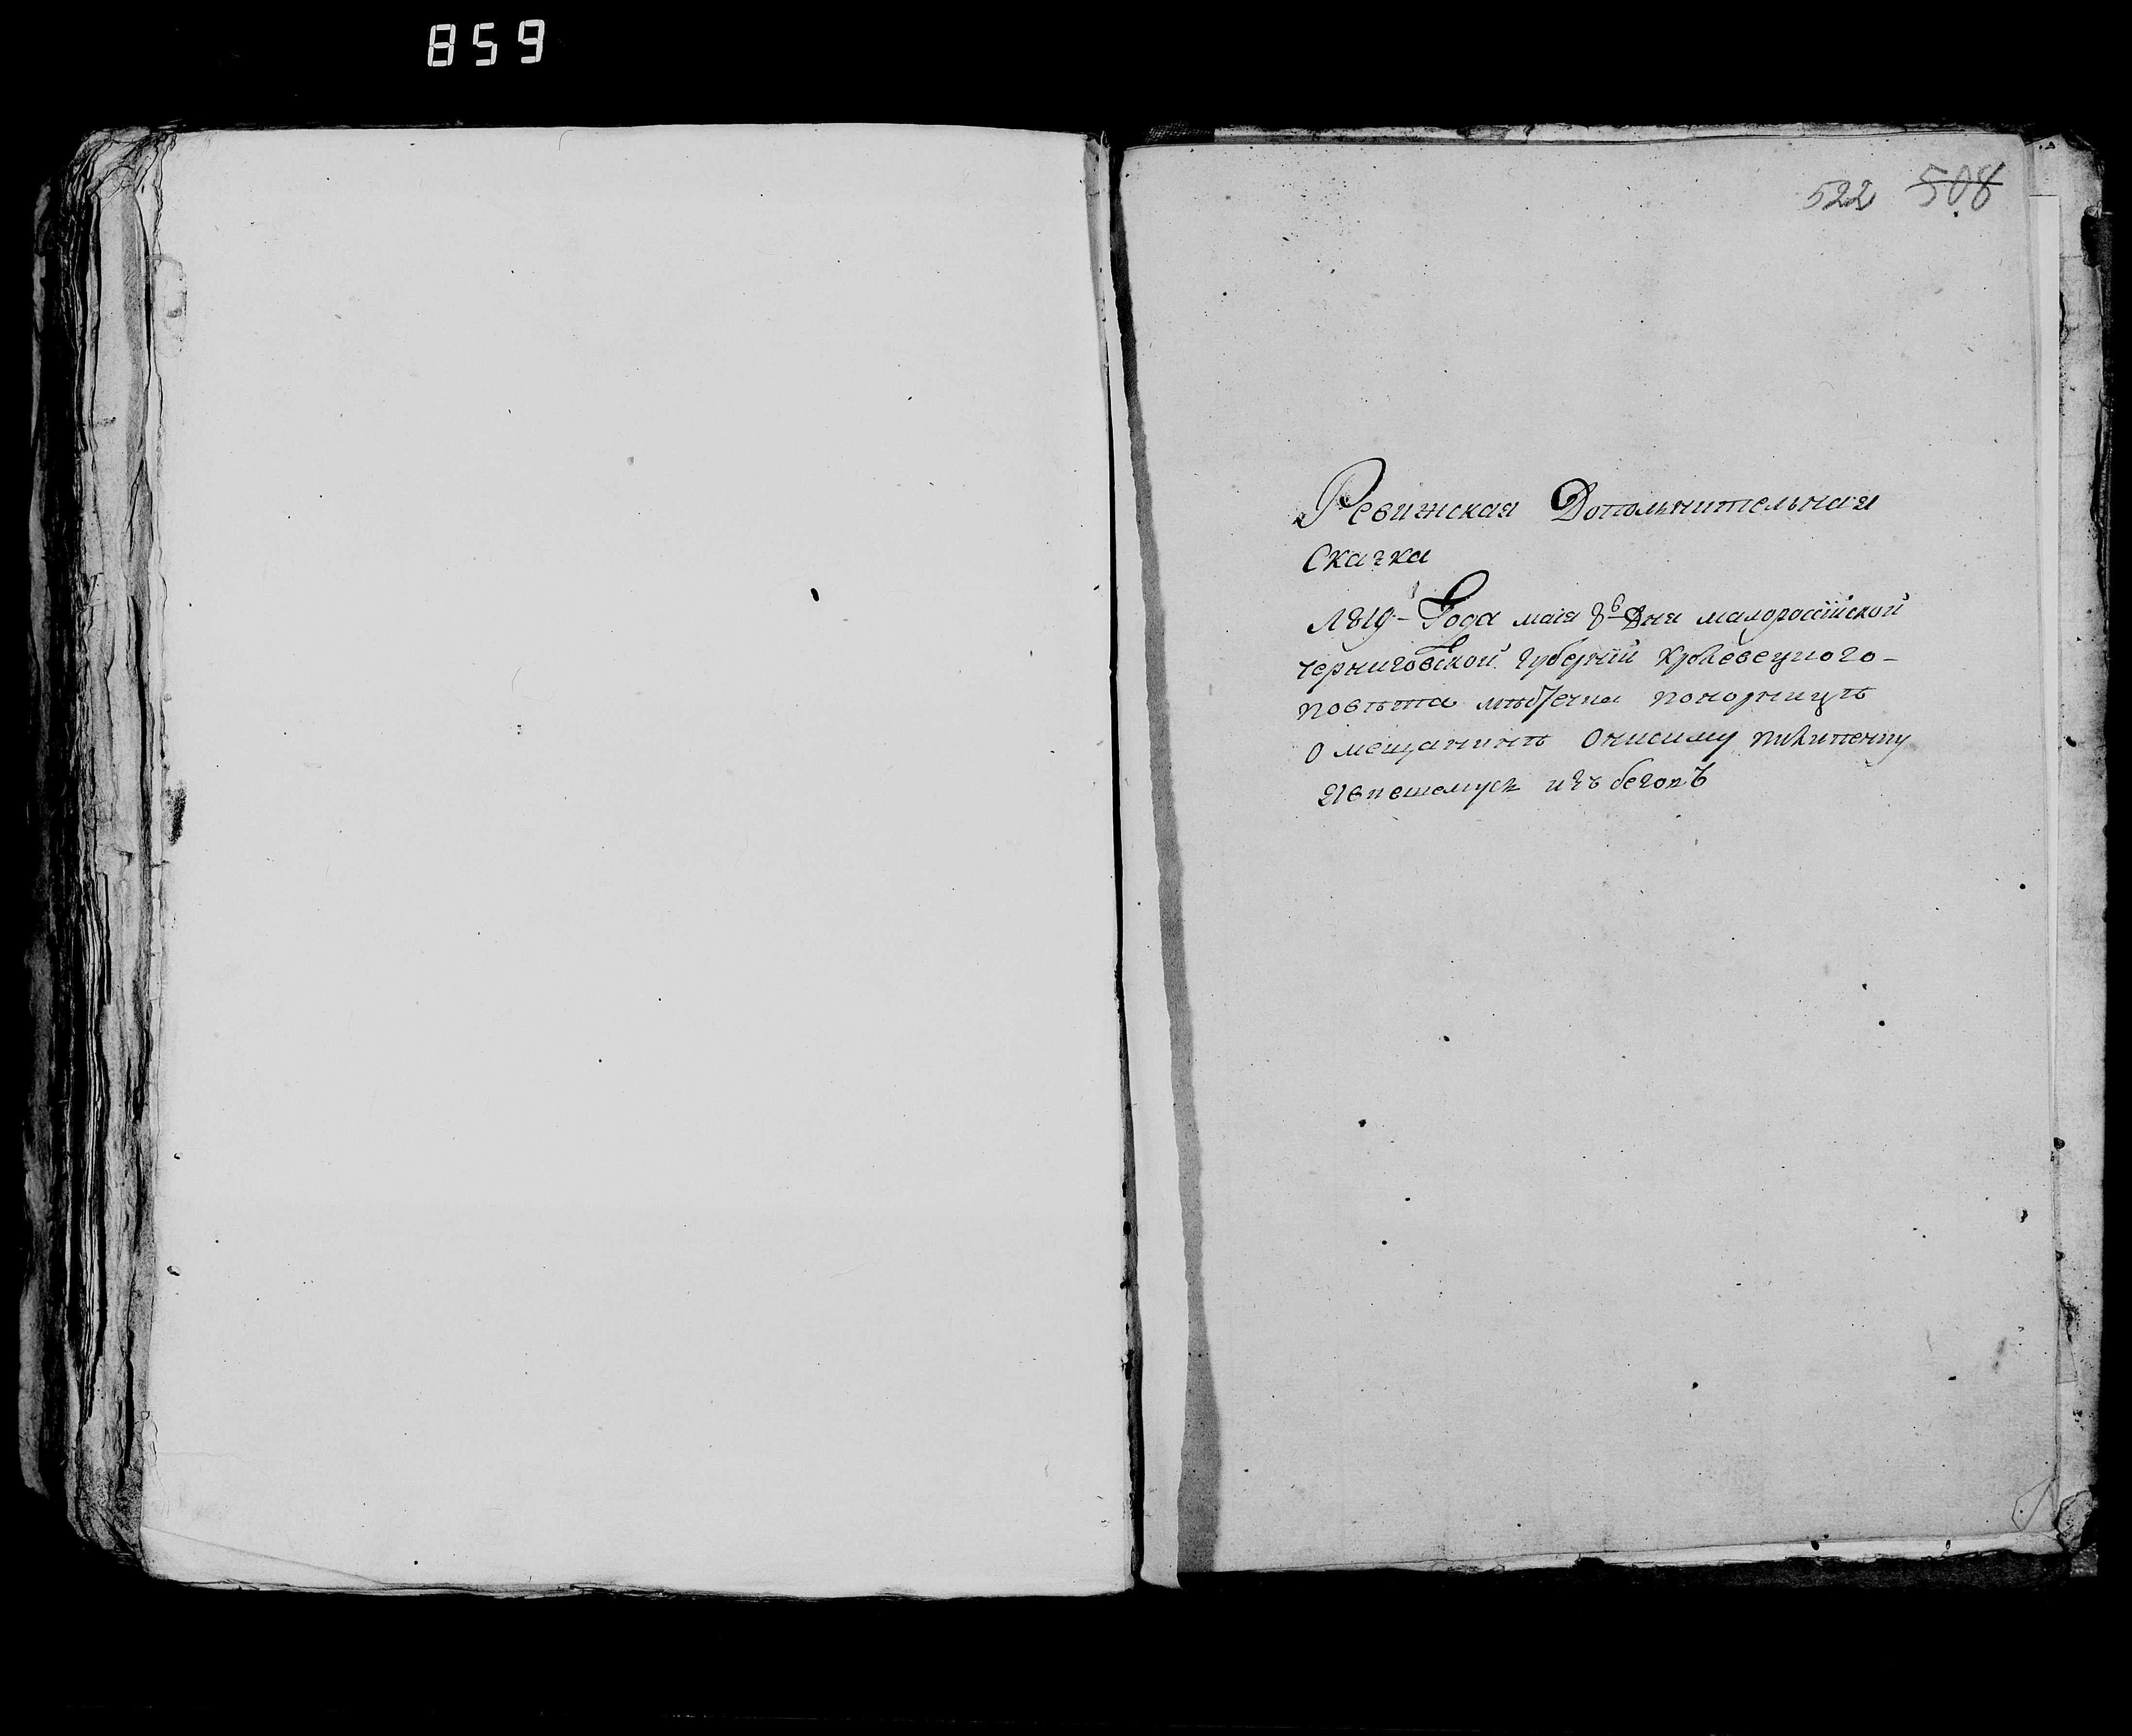 859
522 508
Ревижская Дополнительная
Скачка
1819 – Года мая 8 Дня малоросїйской
черниговской губернїи Кролевецкого –
повѣта мѣстечка понорницѣ
О мещанинѣ Онисиму
Явившемуся изъ беговъ